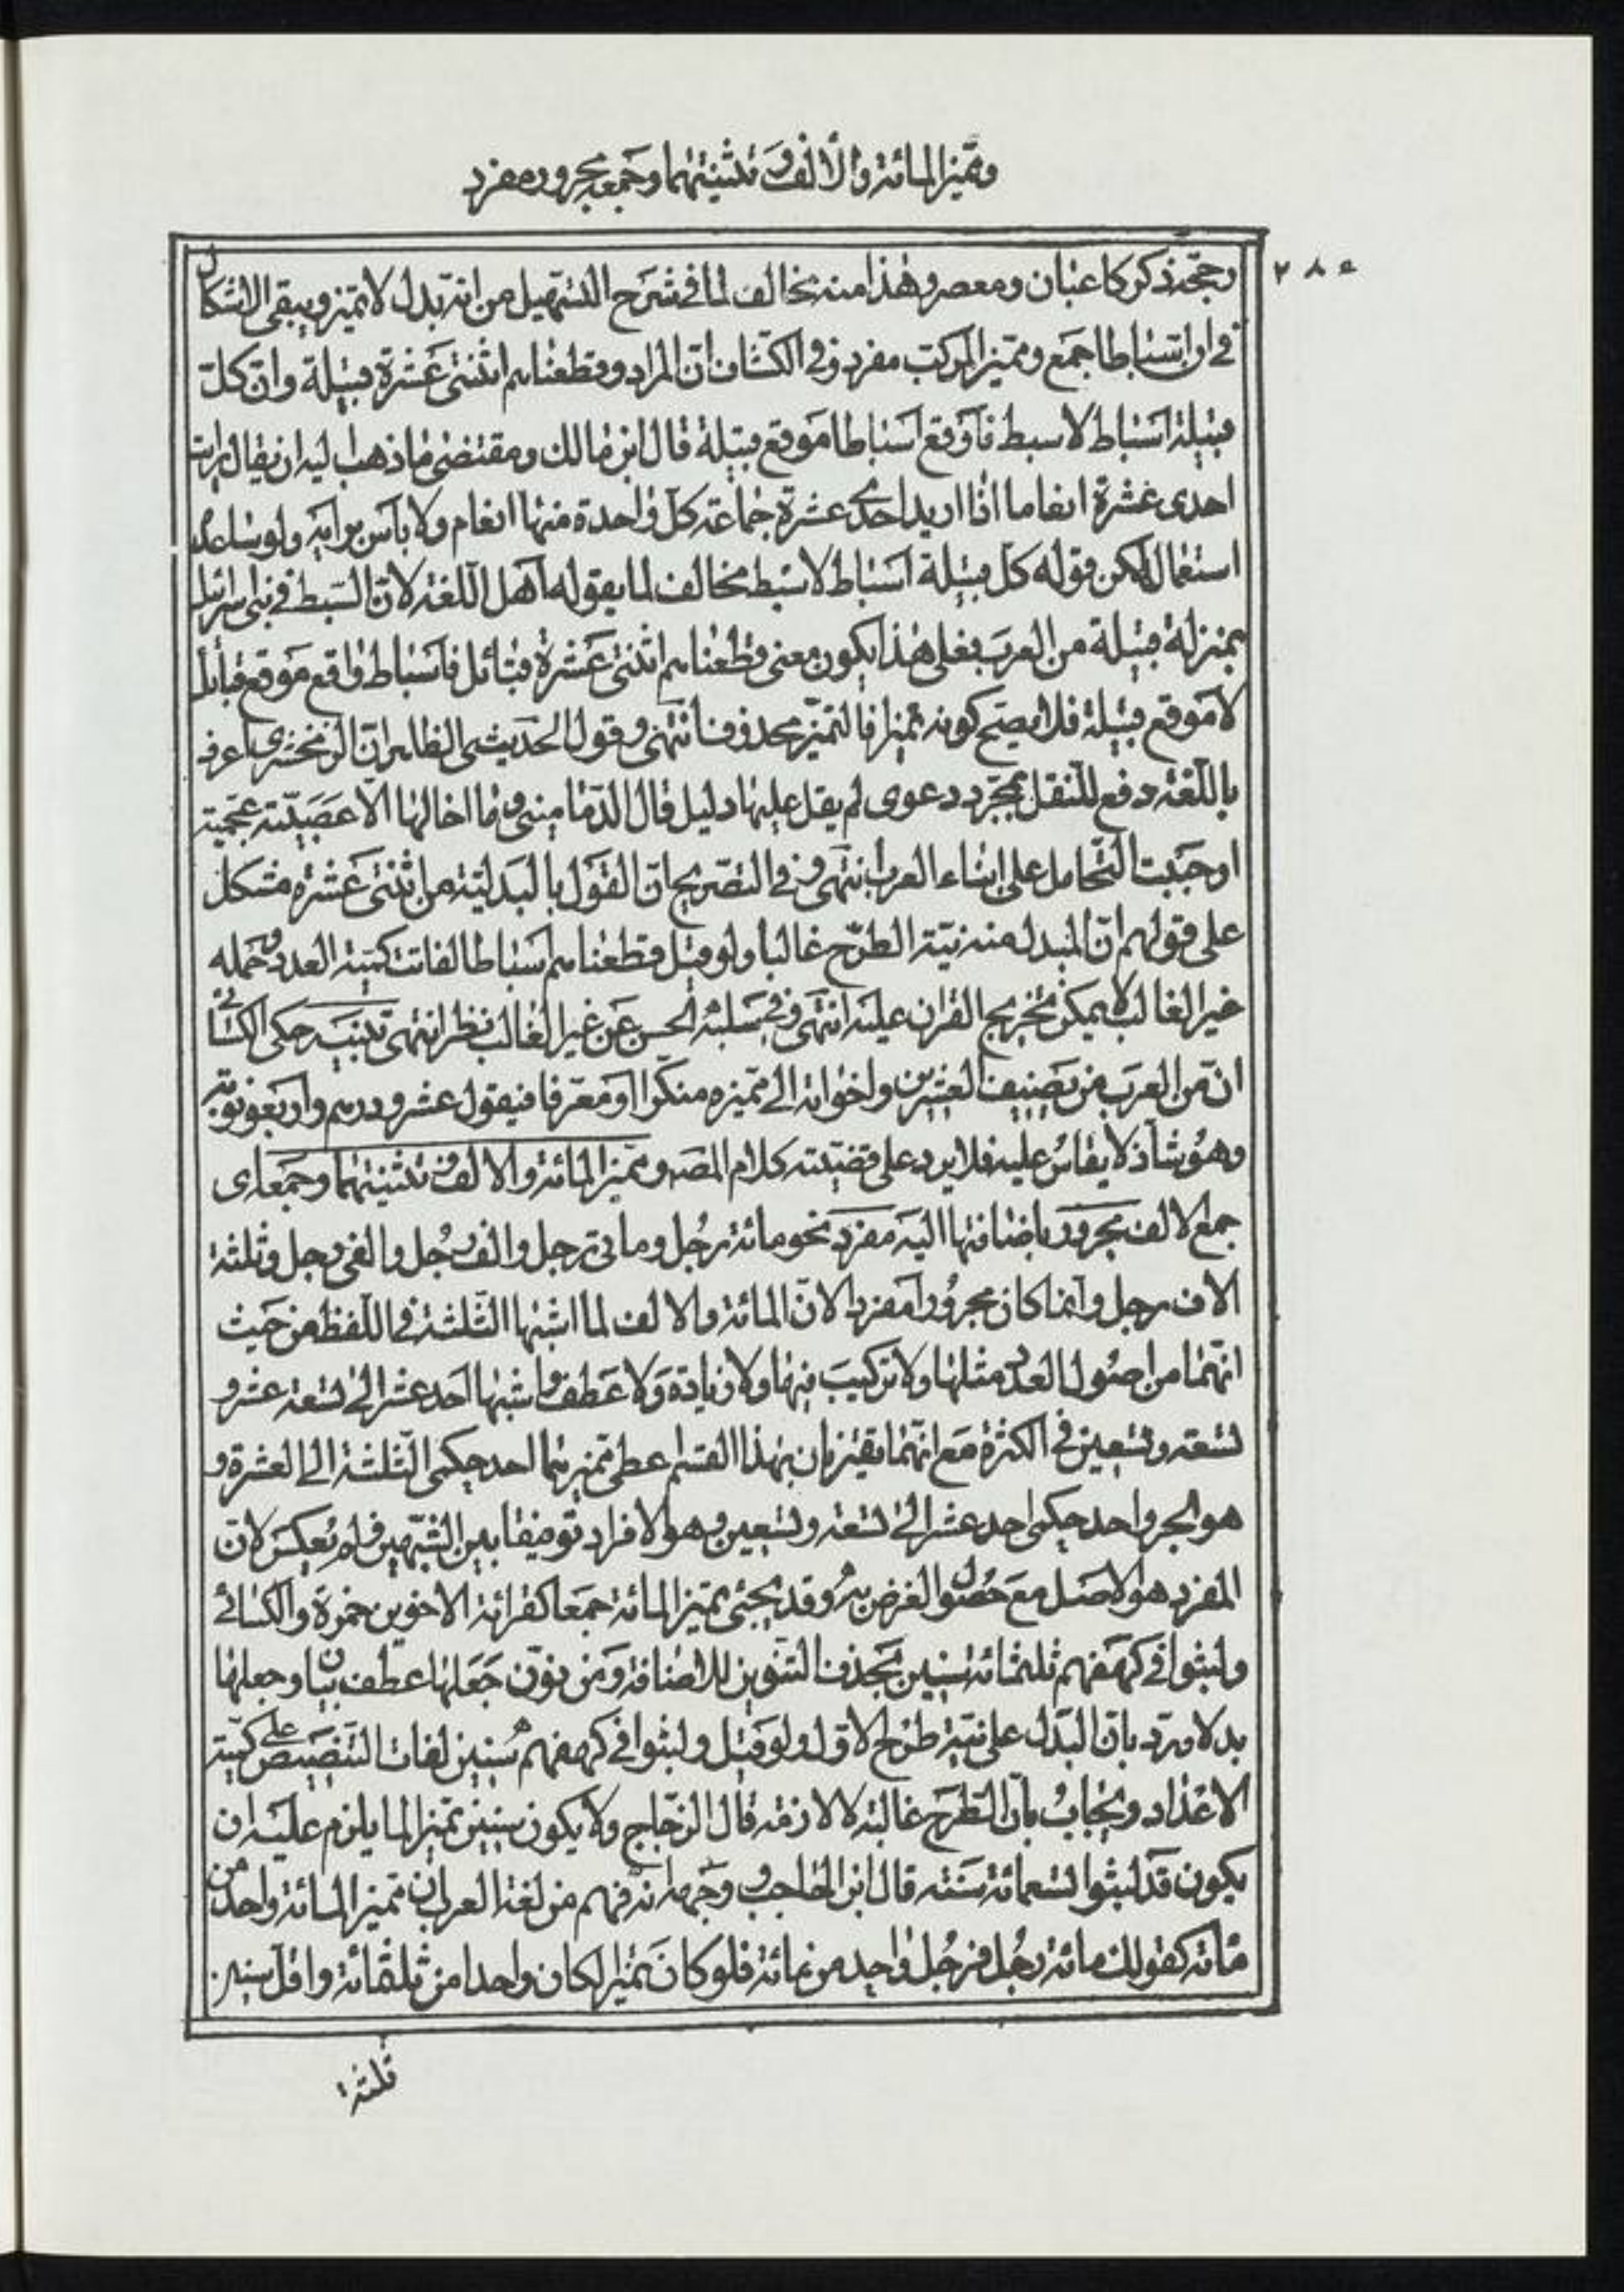 ومميز المائة والألف وتثنيتهما وجمعه مجرور مفرد
٢٨٥
رجح ذكر كاعبان ومعصر وهذا منه مخالف لما في شرح التسهيل من انه بدل لا تميز ويبقى الاشكال
في ان اسباطا جمع ومميز المركب مفرد وفي الكشاف ان المراد وقطعناهم اثنتى عشرة قبيلة وان كل
قبيلة اسباط لا سبط فاوقع اسباطا موقع قبيلة قال ابن مالك ومقتضى ما ذهب اليه ان يقال رايت
احدى عشرة انعاما اذا اريد احدى عشرة جماعة كل واحدة منها انعام ولا بأس برايه ولو ساعده
استعمال لكن قوله كل قبيلة اسباط لا سبط مخالف لما يقوله اهل اللغة لان السبط في بنى اسرائيل
بمنزلة قبيلة من العرب فعلى هذا يكون معنى قطعناهم اثنتى عشرة قبائل فاسباط واقع موقع قبائل
لا موقع قبيلة فلا يصح كونه تميزا فالتميز محذوف انتهى وقول الحديثى الظاهر ان الزمخشرى اعرف
باللغة دفع للنقل بمجرد دعوى لم يقل عليها دليل قال الدمامينى وما اخالها الا عصبية عجمية
اوجبت التحامل على ابناء العرب انتهى وفي التصريح ان القول بالبدلية من اثنتى عشرة مشكل
على قولهم ان المبدل منه نية الطرح غالبا ولو قيل قطعناهم اسباطا لفاتت كمية العدد وحمله
غير الغالب لا يمكن تخريج القران عليه انتهى وفي سلبه الحسن عن غير الغالب نظر انتهى تنبيه حكى الكسائى
ان من العرب من يضيف العشرين واخواته الى مميزه منكرا او معرفا فيقول عشرو درهم واربعو ثوبه
وهو شاذ لا يقاس عليه فلا يرد على قضيته كلام المصه ومميز المائة والالف وتثنيتهما وجمعه اى
جمع الالف مجرور باضافتها اليه مفرد نحو مائة رجل ومأتى رجل والف رجل والفى رجل وثلثة
الاف رجل وانما كان مجرورا مفردا لان المائة والالف لما اشبها الثلثة في اللفظ من حيث
انهما من اصول العدد مثلها ولا تركيب فيهما ولا زيادة ولا عطف واشبها احد عشر الى تسعة عشر و
تسعة وتسعين في الكثرة مع انهما يقترنان بهذا القسم اعطى مميزهما احد حكمى الثلثة الى العشرة و
هو الجر واحد حكمى احد عشر الى تسعة وتسعين وهو الافراد توفيقا بين الشبهين ولم يعكس لان
المفرد هو الاصل مع حصول الغرض به وقد يجئ تميز المائة جمعا كقرائة الاخوين حمزة والكسائى
ولبثوا في كهفهم ثلثمائة سنين بحذف التنوين للاضافة ومن نون جعلها عطف بيان او جعلها
بدلا ورد بان البدل على نية طرح الاول ولو قيل ولبثوا في كهفهم سنين لفات التنصيص على كمية
الاعداد ويجاب بان الطرح غالبة لا لازمة قال الزجاج ولا يكون سنين تميزا لما يلزم عليه ان
يكون قد لبثوا تسعمائة سنة قال ابن الحاجب وجهه انه فهم من لغة العرب ان مميز المائة واحد من
مائة كقولك مائة رجل فرجل واحد من مائة فلو كان تميزا لكان واحدا من ثلثمائة واقل سنين
ثلثة